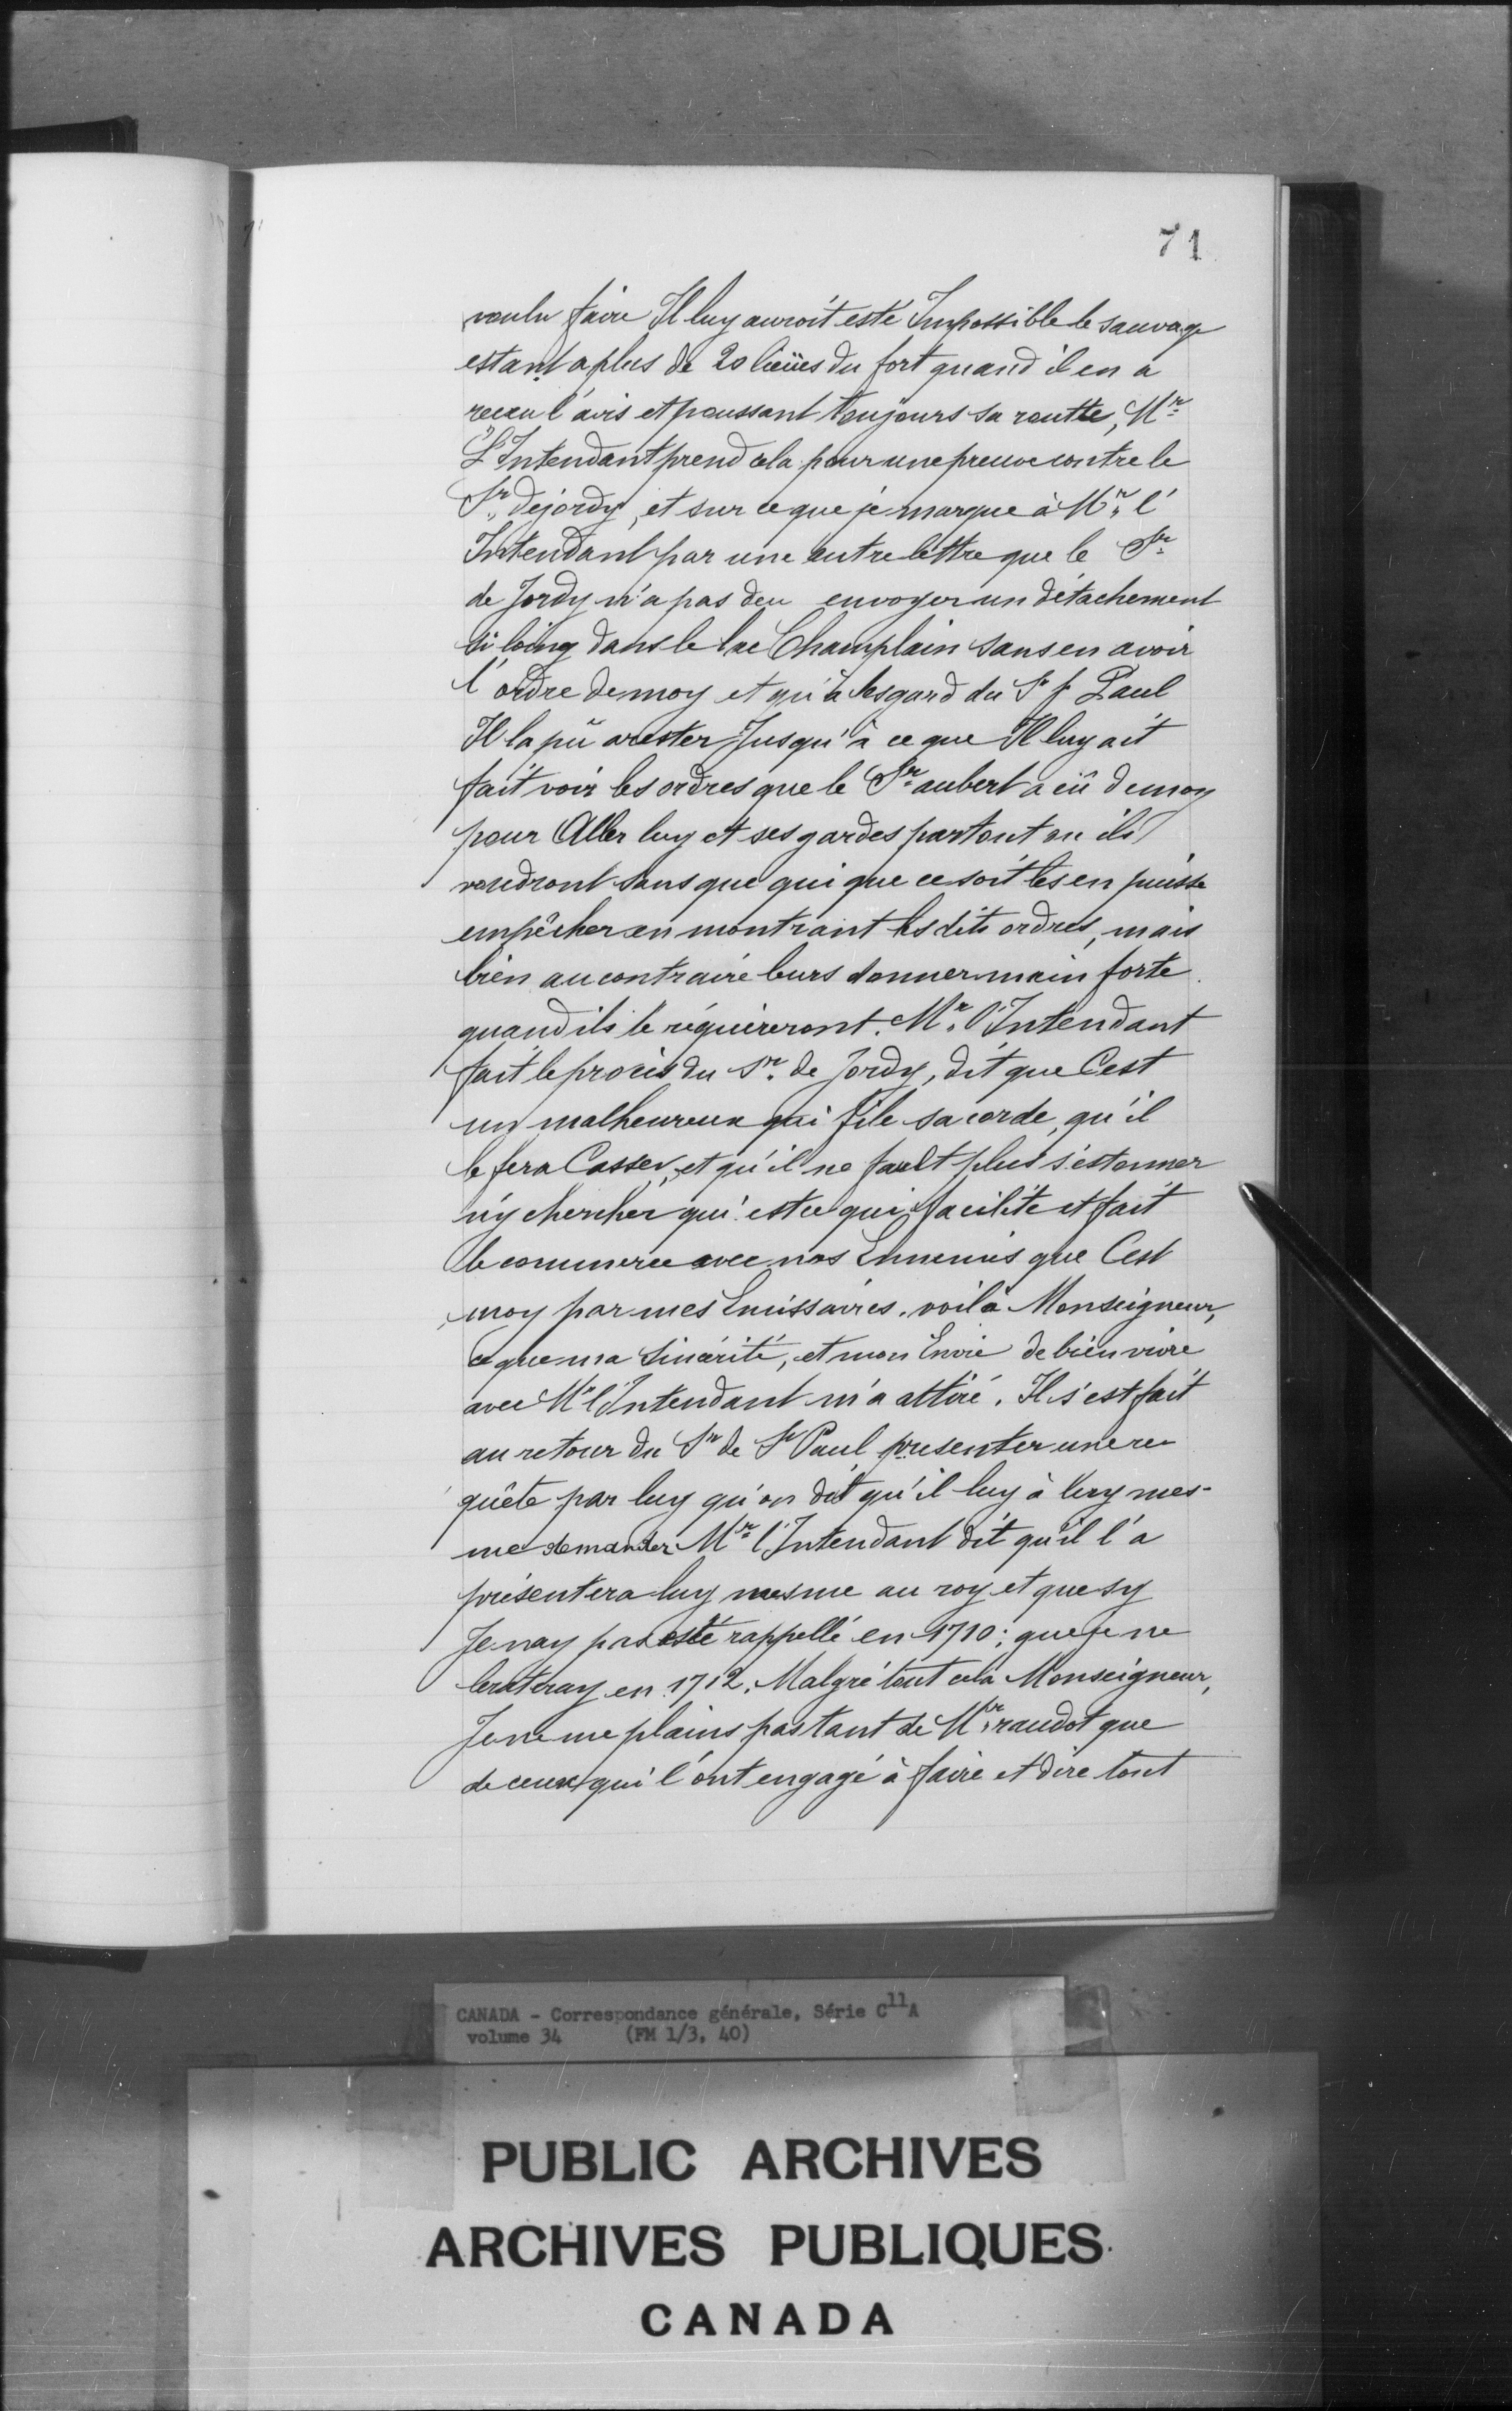 71
voulu faire Il luy auroit esté Impossible le sauvage
estant a plus de 20 lieües du fort quand il en a
receu l'avis et poussant toujours sa routte, Mr
L'Intendant prend cela pour une preuve contre le
Sr. dejordy, et sur ce que je marque à Mr. l'
Intendant par une autre lettre que le Sr
de Jordy n'a pas deu envoyer un détachement
si loing dans le lac Champlain sans en avoir
l'ordre de moy et qu'à lesgard du Sr St Paul
Il la pû arester Jusqu'à ce que Il luy ait
fait voir les ordres que le Sr aubert a eû de moy
pour Aller luy et ses gardes partout ou ils
voudront sans que qui que ce soit les en puisse
empêcher en montrant les dits ordres, mais
bien au contraire leurs donner main forte
quand ils le réquireront. Mr. l'Intendant
fait le procès du Sr. de Jordy, dit que C'est
un malheureux qui file sa corde, qu'il
le fera Casser, et qu'il ne fault plus s'estonner
n'y chercher qui est ce qui facilite et fait
le commerce avec nos Ennemis que C'est
moy par mes Emissaires. voilà Monseigneur,
ce que ma Sincérité, et mon Envie de bien vivre
avec Mr l'Intendant m'a attiré. Il s'est fait
au retour du Sr de St Paul, presenter une re
quête par luy qu'on dit qu'il luy à luy mes-
me demander Mr l'Intendant dit qu'il l'a
présentera luy mesme au roy et que sy
Je nay pas esté rappellé en 1710; que je ne
 en 1712. Malgré tout cela Monseigneur,
Je ne me plains pas tant de Mr. raudot que
de ceux qui l'ont engagé à faire et dire tout
CANADA - Correspondance générale, Série C11A
volume 34 (FM 1/3, 40)
PUBLIC ARCHIVES
ARCHIVES PUBLIQUES
CANADA